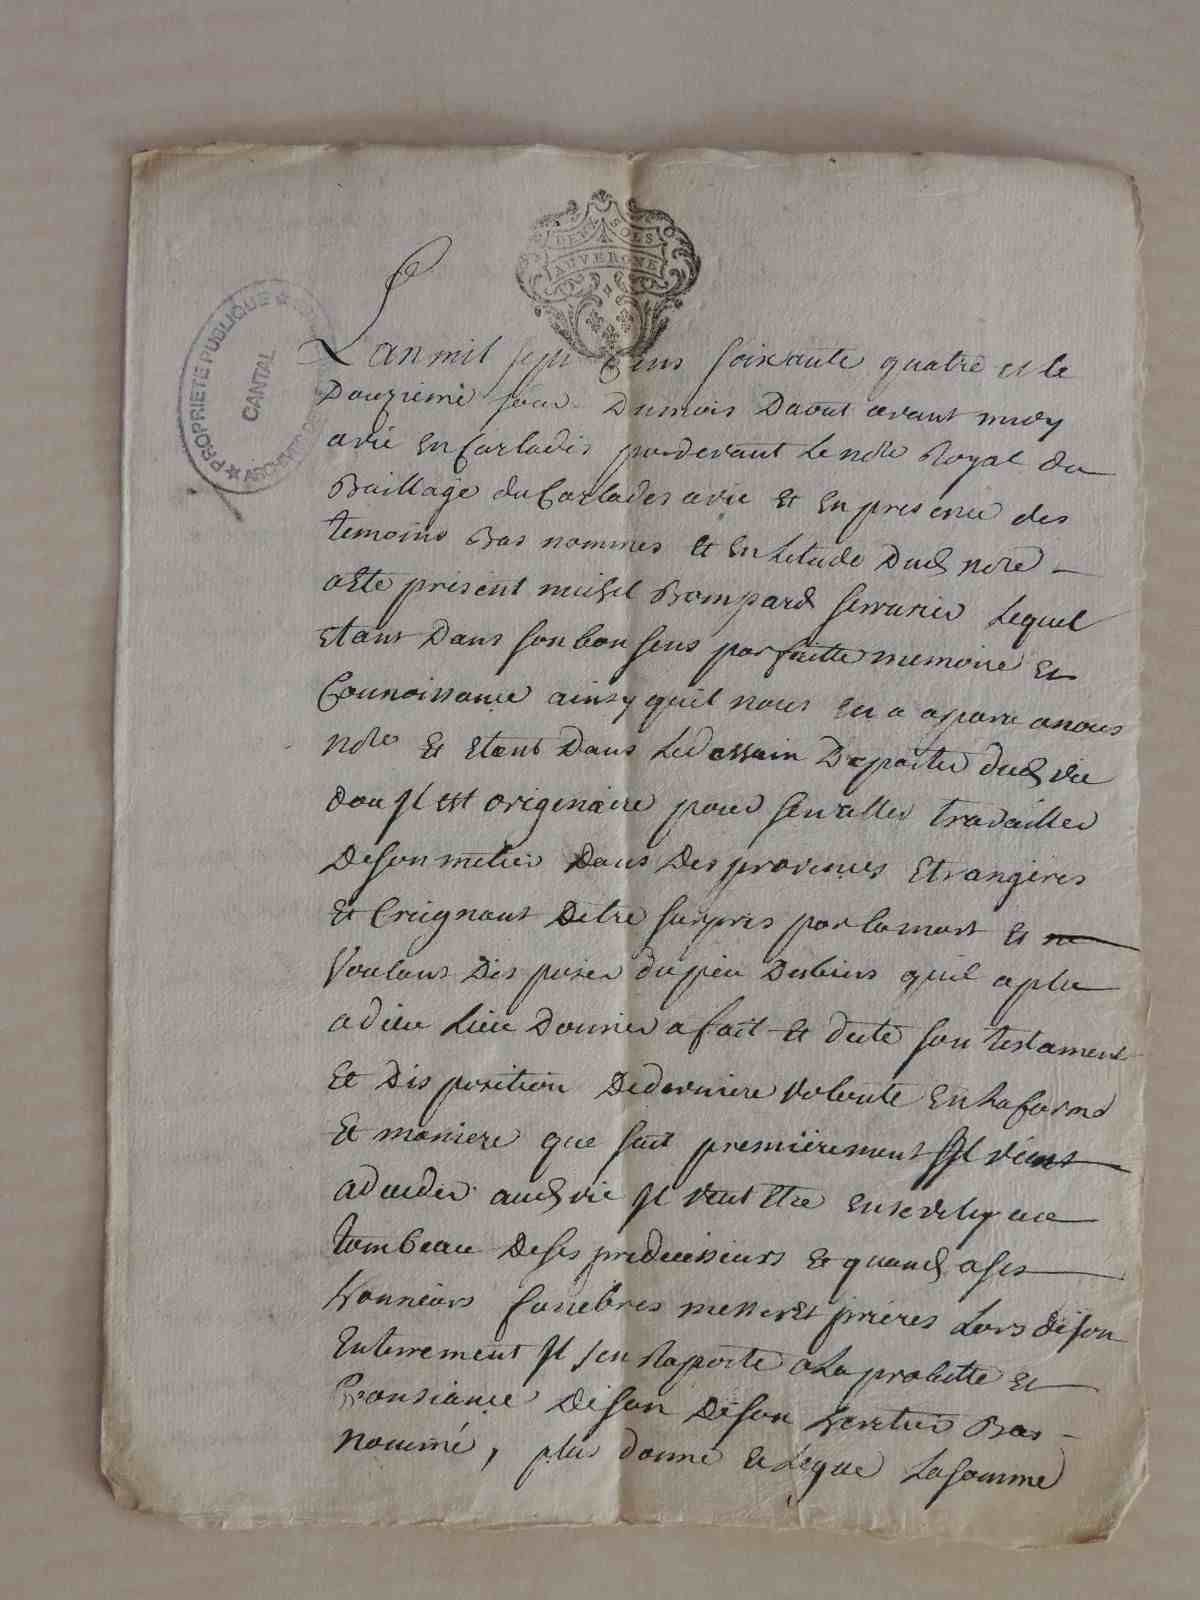 DEUX SOLS
AUVERGNE
★ PROPRIETE PUBLIQUE ★
CANTAL
ARCHIVES
L'an mil sept cens soixante quatre et le
Douzieme jour Dumois Daout avant midy
avic En Carladés pardevant le notre Royal du
Baillage du Carlades avic Et En presence des
temoins Bas nommes Et En Letude Dud notre
aeté present michel Bompard serrurier Lequel
Etant Dans son bon sens parfaitte memoire Et
Connoissance ainsy quil nous En a aparu anous
notre Et Etant Dans Ledessain De partir dud vic
dou Jl est originaire pour senaller travailler
Deson métier Dans Des provinces Etrangéres
Et Creignant Detre surpris par lamort Et
Voulant Disposer dupeu Desbiens quil aplu
adieu Luic Donner afait Et dicté son testament
Et Disposition Dederniere volonté En Laforme
Et maniere que suit premiérement sil vient
adceder aud vic Jl veut Etre Ensevely au
tombeau Deses predecesseurs Et quand ases
honneurs funebres messes et priéres Lors deson
Enterrement Jl sen Raporte a La probitte Et
Consiance Deson Deson heritier Bas
nommé, plus donne Et Legue Lasomme